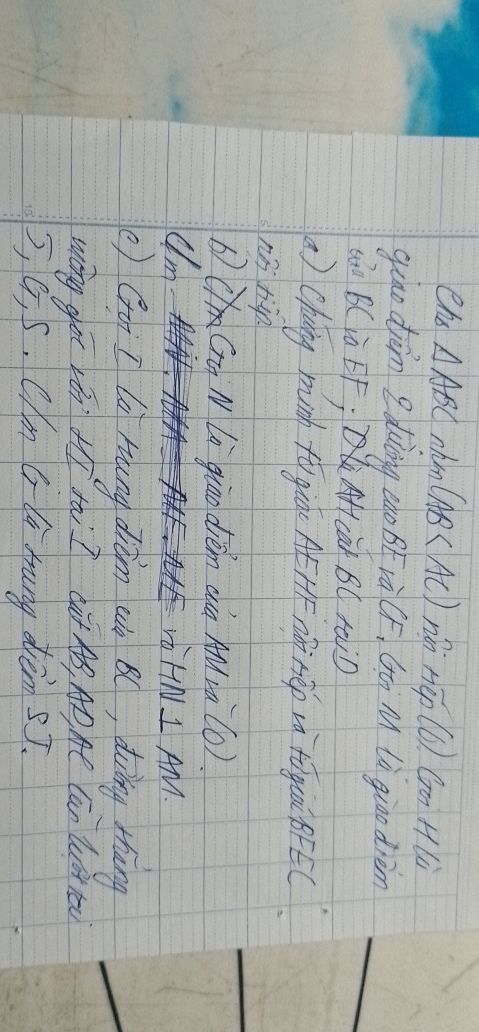 Cho Δ ABC nhọn (AB < AC) nội tiếp (O). Gọi H là
giao điểm 2 đường cao BE và CF. Gọi M là giao điểm
của BC và EF; D là AH cắt BC tại D
a) Chứng minh tứ giác AEHF nội tiếp và tứ giác BFEC
nội tiếp.
b) C/m Gọi N là giao điểm của AM và (O).
C/m và HN ⊥ AM.
c) Gọi I là trung điểm của BC, đường thẳng
vuông góc với HI tại I cắt AB, AD, AC lần lượt tại
J, G, S. C/m G là trung điểm SJ.